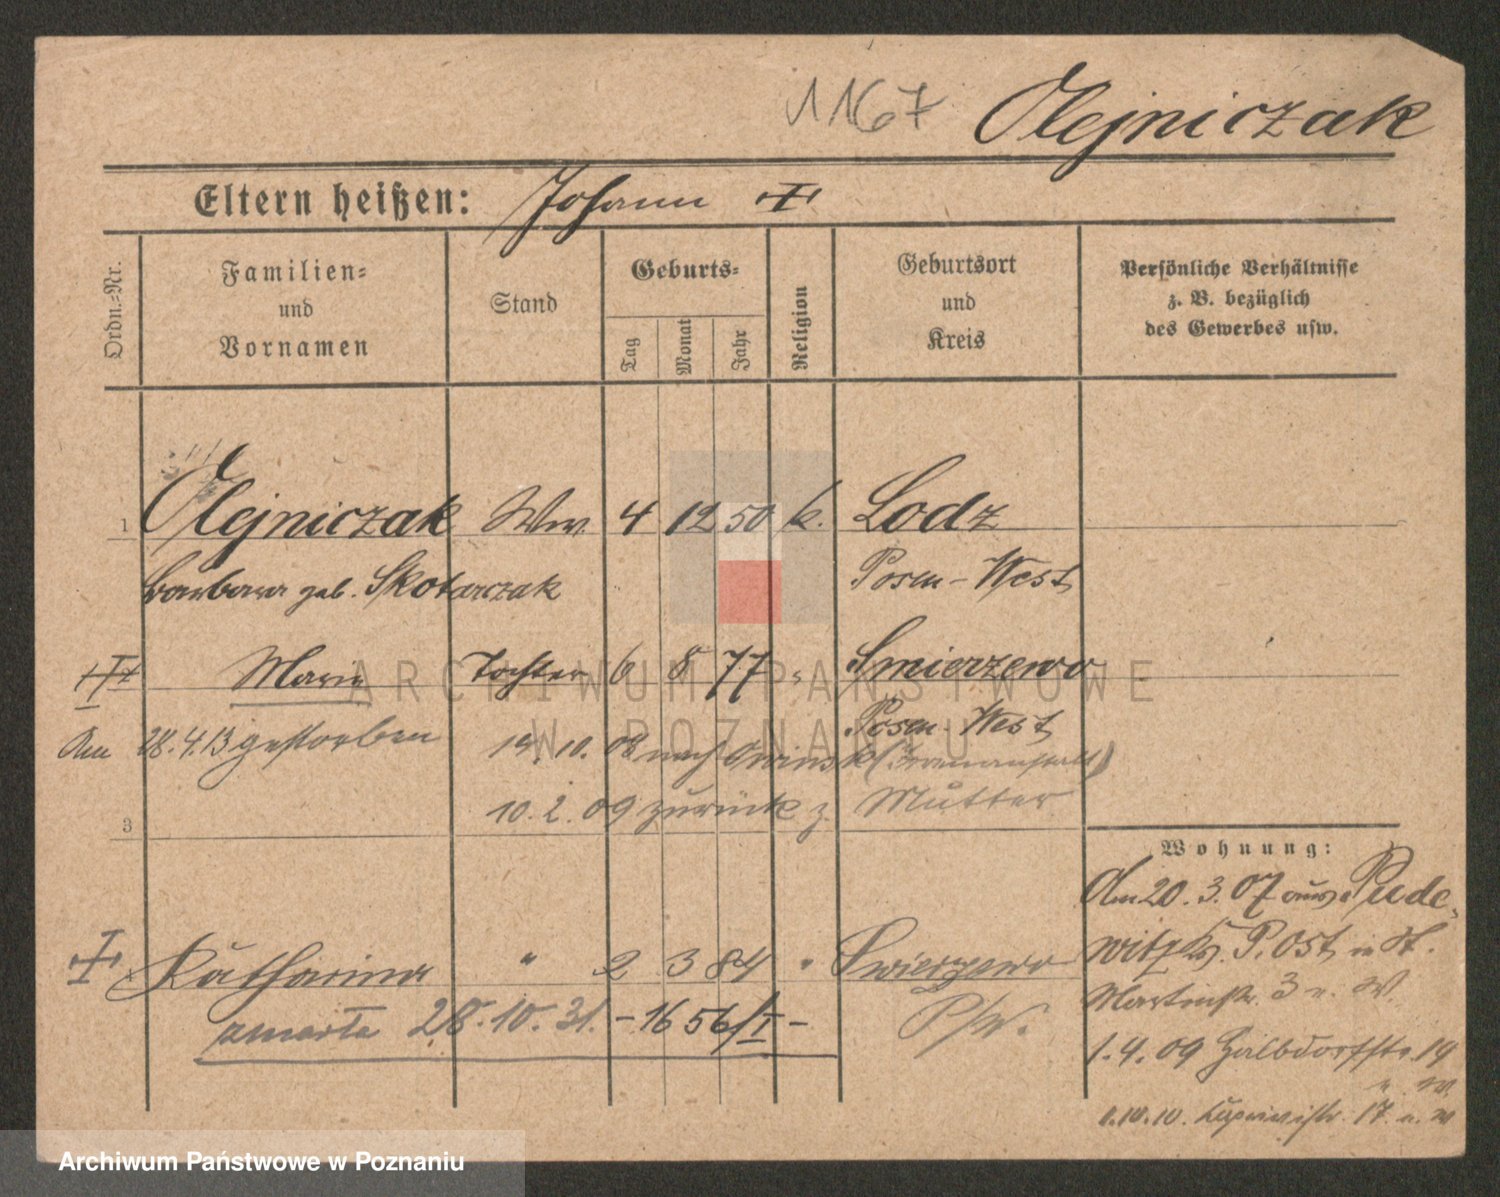 1167 Olejniczak
Eltern heißen: Johann
Ordn.-Nr.
Familien- und Vornamen
Stand
Geburts-
Tag
Monat
Jahr
Religion
Geburtsort und Kreis
Persönliche Verhältnisse z. B. bezüglich des Gewerbes usw.
1 Olejniczak Ww. 4 12 50 k. Lodz
Barbara geb. Skotarczak Posen-West
Marie Tochter 6 8 77 " Smierzewo
Posen-West
Am 28.4.13 gestorben 19.10.08 nach Owinsk (Irrenanstalt)
10.2.09 zurück z. Mutter
3
Wohnung:
Am 20.3.07 aus Pude-
witz Kr. P. Ost in St.
Martinstr. 3 u. W.
1.4.09 Halbdorfstr. 19
" W.
1.10.10. 17. u. W
Katharina " 2 3 84 " Swierzewo
zmarła 28.10.31. - 1656/I - P/W.
ARCHIWUM PAŃSTWOWE
W POZNANIU
Archiwum Państwowe w Poznaniu